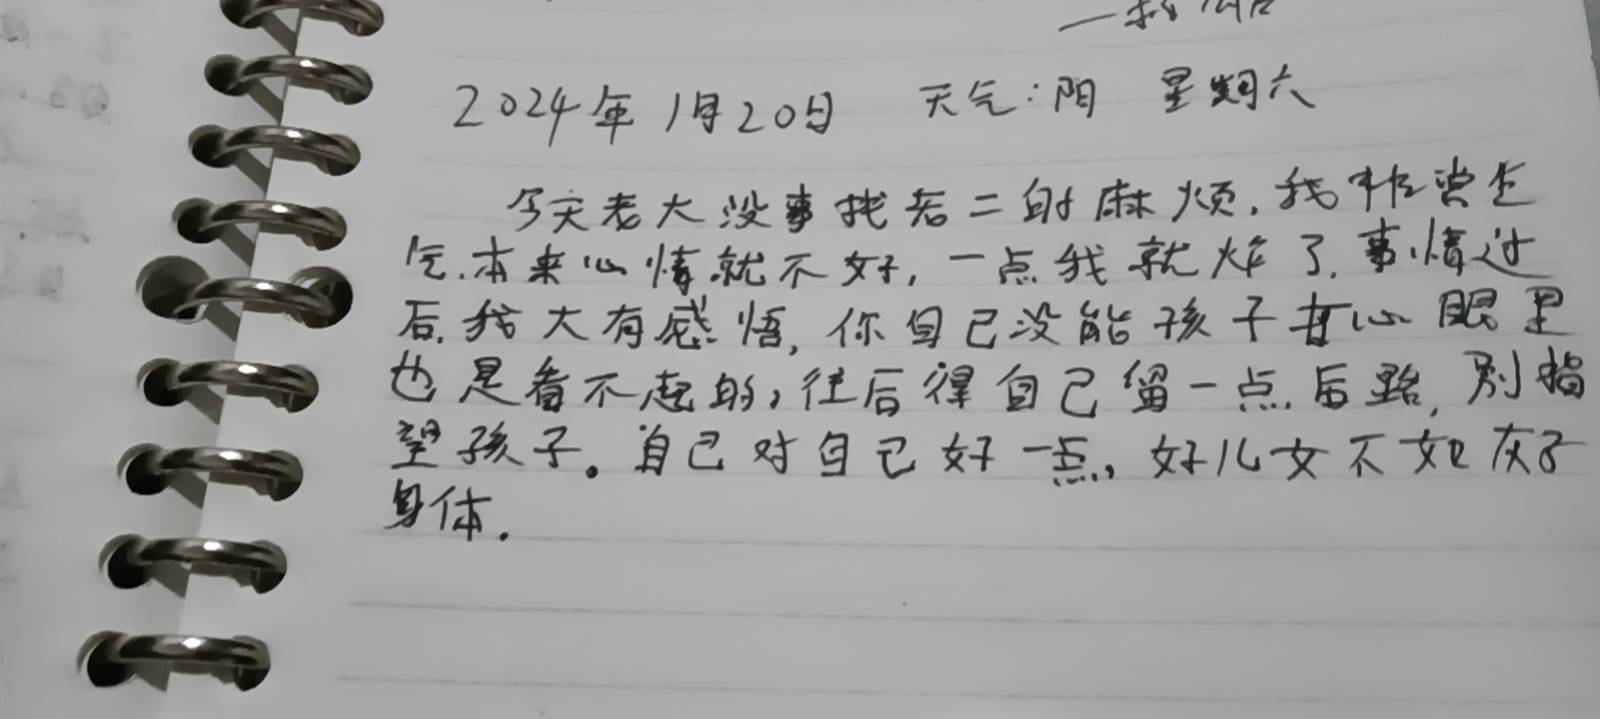 2024年1月20日 天气:阳 星期六
今天老大没事找老二的麻烦,我非常生
气.本来心情就不好,一点我就炸了.事情过
后.我大有感悟,你自己没能孩子打心眼里
也是看不起的,往后得自己留一点后路,别指
望孩子。自己对自己好一点,好儿女不如
身体.